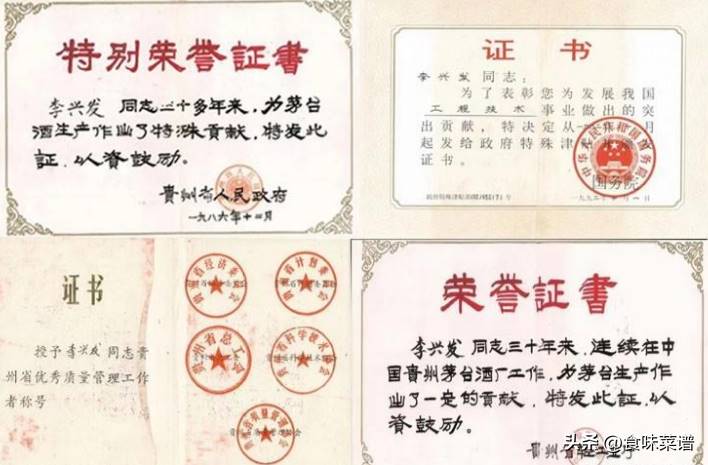 特别荣誉証書
李兴发 同志三十多年来，为茅台
酒生产作出了特殊貢献，特发此
証，以资鼓励。
貴州省人民政府
一九八六年十月
证书
李兴发同志：
为了表彰您为发展我国
工程技术事业做出的突
出贡献，特决定从一九 月
起发给政府特殊津
证书。
中华人民共和国国务院
国务院
证书
授予李兴发同志贵
州省优秀质量管理工作
者称号
贵州省经济委员会
贵州省计划委员会
贵州省总工会
贵州省科学技术
荣誉証書
李兴发 同志三十年来，连续在中
国貴州茅台酒厂工作，为茅台生产作
出了一定的贡献，特发此証，以
资鼓励。
貴州省轻工业厅
头条 @食味菜谱